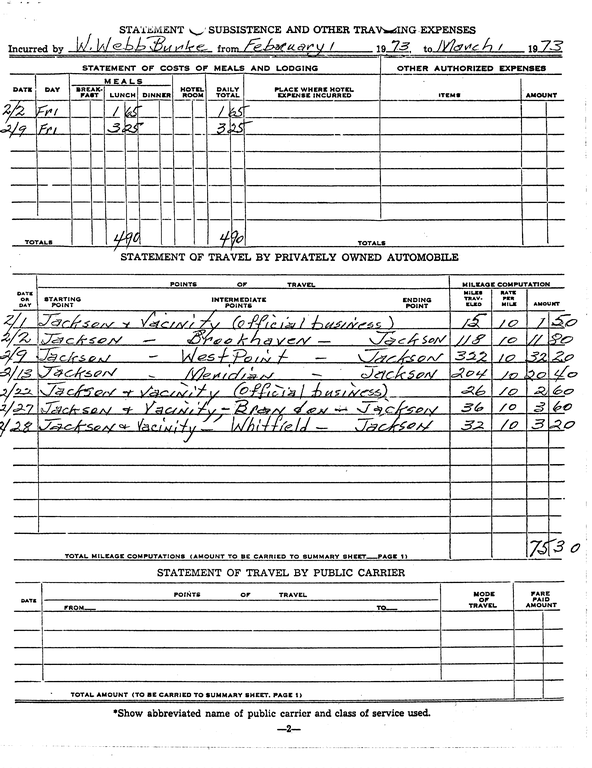 STATEMENT SUBSISTENCE AND OTHER TRAVELING EXPENSES
Incurred by W. Webb Burke from February 1 1973. to March 1 1973
STATEMENT OF COSTS OF MEALS AND LODGING OTHER AUTHORIZED EXPENSES
DATE DAY MEALS BREAK-FAST LUNCH DINNER HOTEL ROOM DAILY TOTAL PLACE WHERE HOTEL EXPENSE INCURRED ITEMS AMOUNT
2/2 Fri 1 65 1 65
2/9 Fri 3 25 3 25
TOTALS 4 90 4 90 TOTALS
STATEMENT OF TRAVEL BY PRIVATELY OWNED AUTOMOBILE
POINTS OF TRAVEL MILEAGE COMPUTATION
DATE OR DAY STARTING POINT INTERMEDIATE POINTS ENDING POINT MILES TRAV-ELED RATE PER MILE AMOUNT
2/1 Jackson & Vacinity (official business) 15 10 1 50
2/2 Jackson - Brookhaven - Jackson 118 10 11 80
2/9 Jackson - West Point - Jackson 322 10 32 20
2/13 Jackson - Meridian - Jackson 204 10 20 40
2/22 Jackson & Vacinity (official business) 26 10 2 60
2/27 Jackson & Vacinity - Brandon - Jackson 36 10 3 60
2/28 Jackson & Vacinity - Whitfield - Jackson 32 10 3 20
75 30
TOTAL MILEAGE COMPUTATIONS (AMOUNT TO BE CARRIED TO SUMMARY SHEET—PAGE 1)
STATEMENT OF TRAVEL BY PUBLIC CARRIER
DATE POINTS OF TRAVEL MODE OF TRAVEL FARE PAID AMOUNT
FROM— TO—
TOTAL AMOUNT (TO BE CARRIED TO SUMMARY SHEET, PAGE 1)
*Show abbreviated name of public carrier and class of service used.
—2—